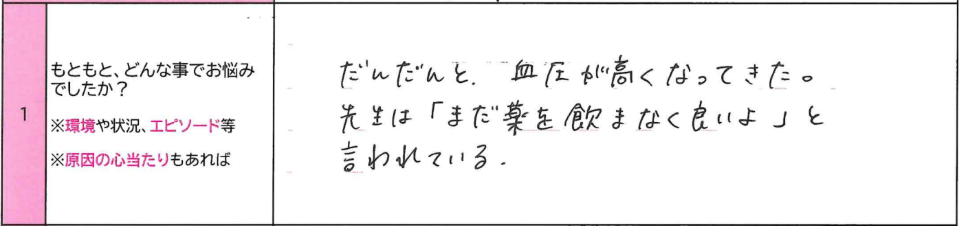 1
もともと、どんな事でお悩み
でしたか？
※環境や状況、エピソード等
※原因の心当たりもあれば
だんだんと、血圧が高くなってきた。
先生は「まだ薬を飲まなく良いよ」と
言われている.